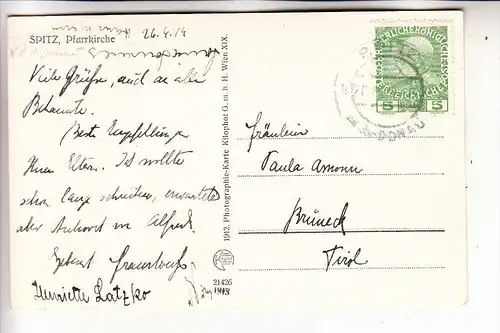 SPITZ, Pfarrkirche
26.4.14
Viele Grüße, auch an alle
Bekannte.
Beste Empfehlungen
Ihren Eltern. Ich wollte
schon lange schreiben, erwartete
aber Antwort von Alfred.
Henriette Latzko
1912. Photographie-Karte Kilophot G. m. b. H. Wien XIX.
21426
1913
5 5
an der DONAU
Fräulein
Paula Amonn
Bruneck
Tirol